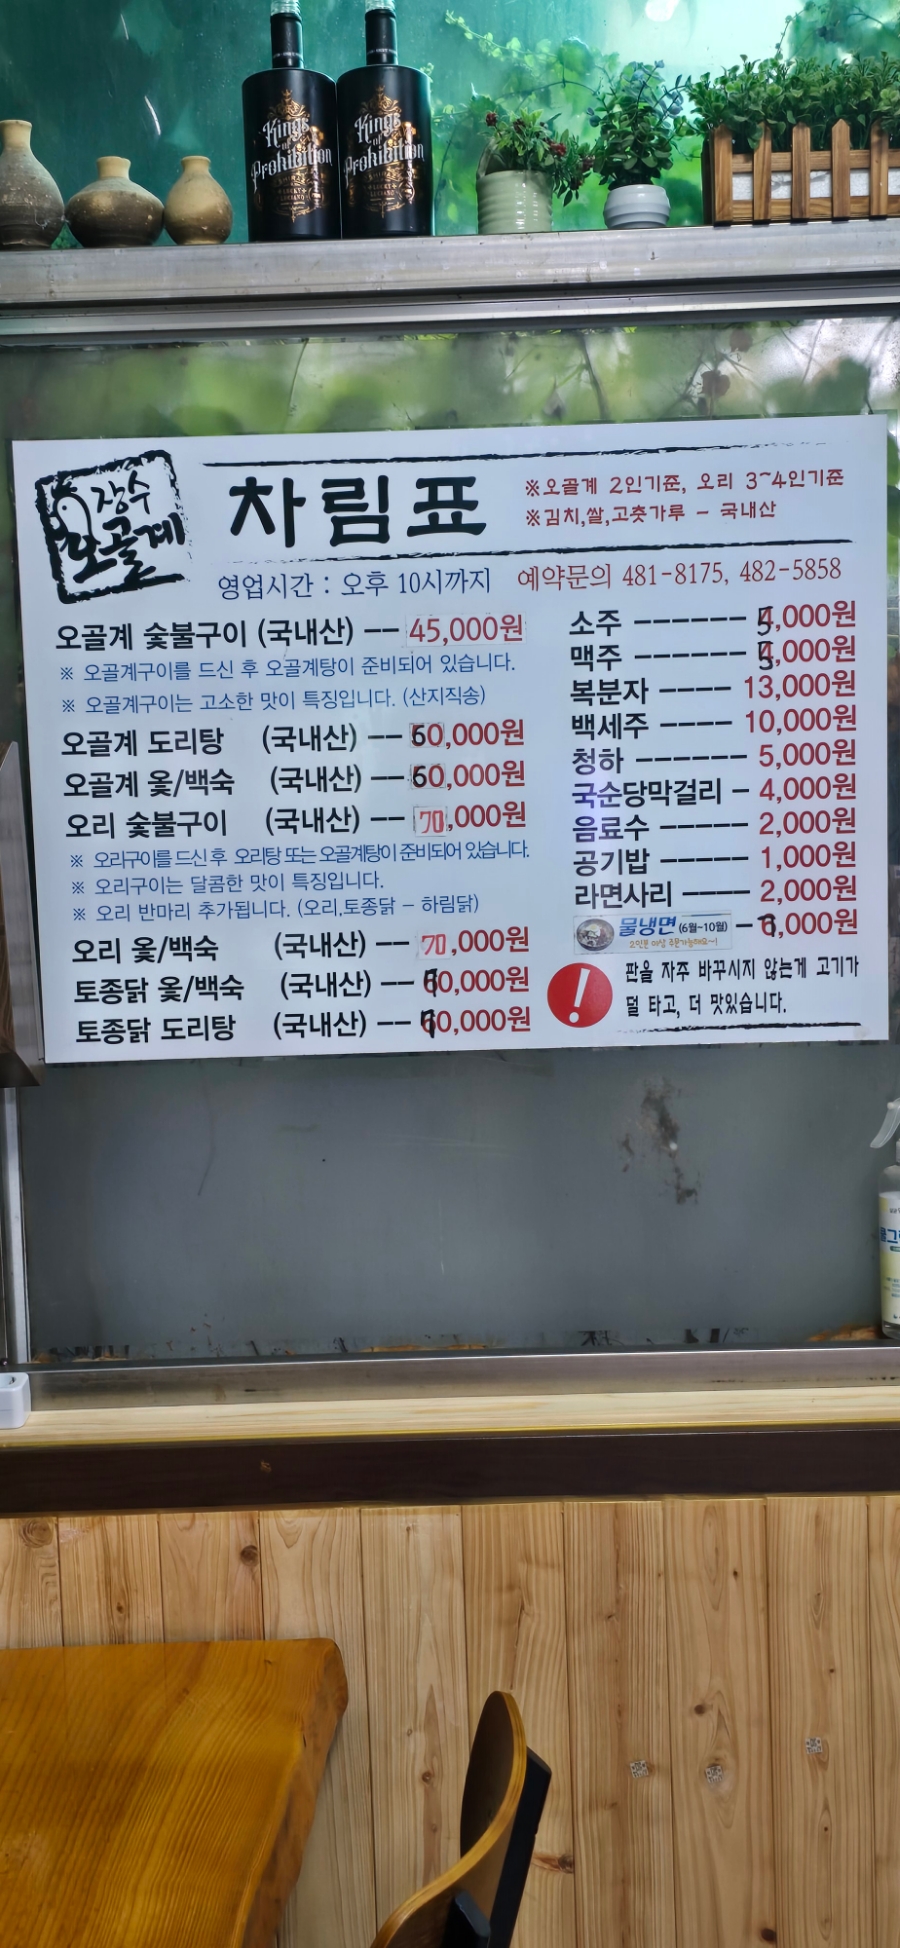 Kings of Prohibition
Kings of Prohibition
장수
오골계
차림표
※오골계 2인기준, 오리 3~4인기준
※김치,쌀,고춧가루 - 국내산
영업시간 : 오후 10시까지 예약문의 481-8175, 482-5858
오골계 숯불구이 (국내산) -- 45,000원
※ 오골계구이를 드신 후 오골계탕이 준비되어 있습니다.
※ 오골계구이는 고소한 맛이 특징입니다. (산지직송)
오골계 도리탕 (국내산) -- 60,000원
오골계 옻/백숙 (국내산) -- 60,000원
오리 숯불구이 (국내산) -- 70,000원
※ 오리구이를 드신 후 오리탕 또는 오골계탕이 준비되어 있습니다.
※ 오리구이는 달콤한 맛이 특징입니다.
※ 오리 반마리 추가됩니다. (오리,토종닭 - 하림닭)
오리 옻/백숙 (국내산) -- 70,000원
토종닭 옻/백숙 (국내산) -- 70,000원
토종닭 도리탕 (국내산) -- 70,000원
소주 ------ 5,000원
맥주 ------ 5,000원
복분자 ---- 13,000원
백세주 ---- 10,000원
청하 ------ 5,000원
국순당막걸리 - 4,000원
음료수 ----- 2,000원
공기밥 ----- 1,000원
라면사리 ---- 2,000원
물냉면 (6월~10월) - 7,000원
2인분 이상 주문가능해요~!
판을 자주 바꾸시지 않는게 고기가
덜 타고, 더 맛있습니다.